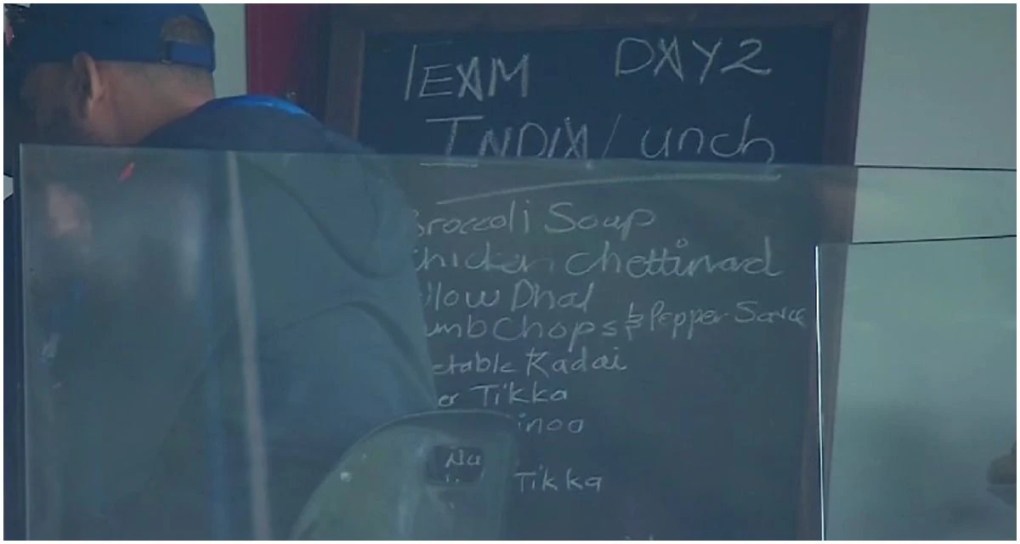 TEAM DAY 2
INDIA lunch
Broccoli Soup
Chicken Chettinard
llow Dhal
mb Chops & Pepper Sauce
etable Kadai
er Tikka
inoa
Tikka